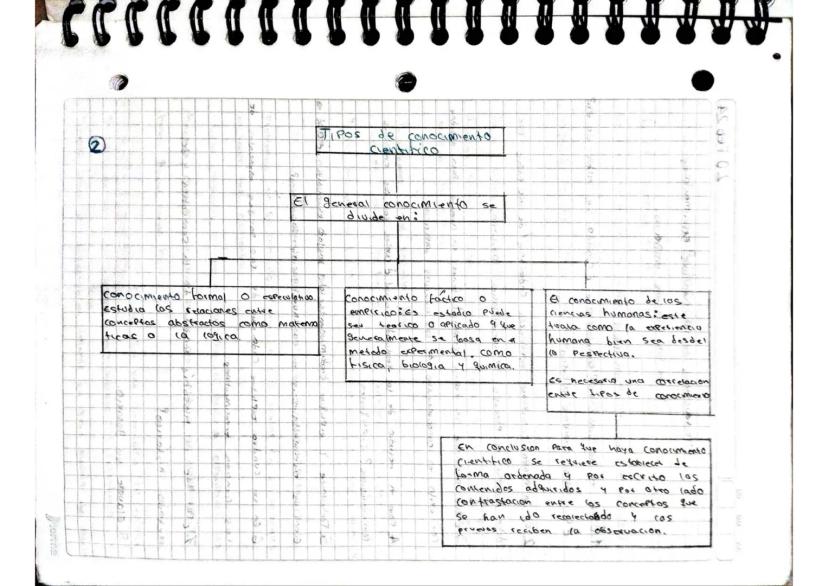 2
Tipos de conocimiento
cientifico
El general conocimiento se
divide en:
conocimiento formal o especulativo.
estudia las relaciones entre
conceptos abstractos como matema
ticas o la logica
Conocimiento fáctico o
empirico: es estudio puede
ser teorico o aplicado y que
generalmente se basa en e
metodo experimental, como
fisica, biologia y quimica.
El conocimiento de las
ciencias humanas: este
trata como la experiencia
humana bien sea desdel
la Pespectiva.
es necesario una correlacion
entre tipos de conocimieno
En conclusion Para que haya conocimiento
cientifico se requiere establecer de
forma ordenada y por escrito los
contenidos adquiridos y por otro lado
contrastacion entre los conceptos que
se han ido recolectando y las
pruevas reciben la observacion.